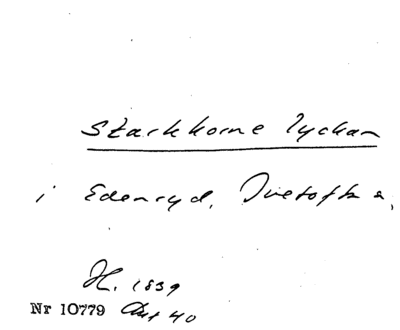 Starkkorne lyckan
i Edenryd, Ivetofta,
H. 1839
Nr 10779 Aut 40